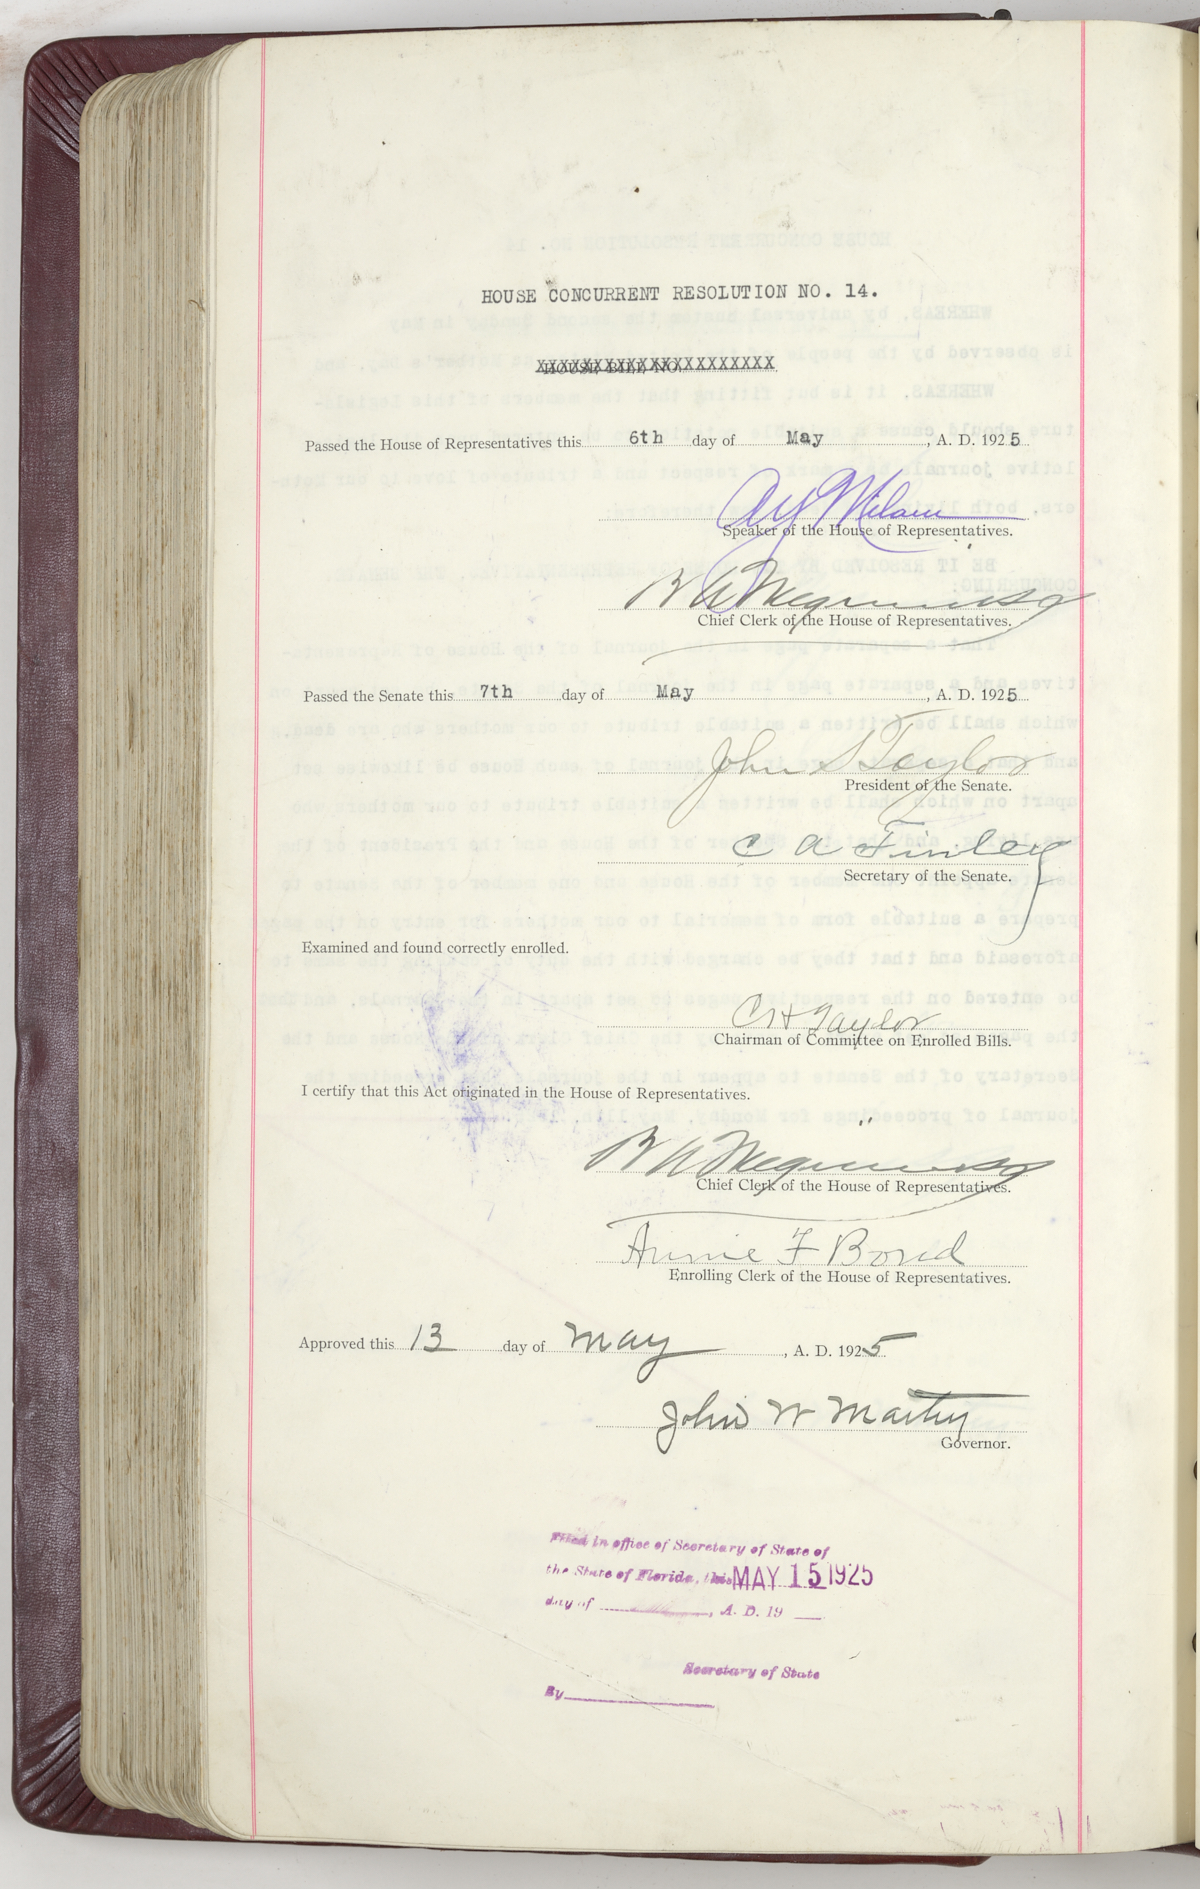 HOUSE CONCURRENT RESOLUTION NO. 14.
XXXXXXXXXXXXXXXXXXXXX
HOUSE BILL NO.
Passed the House of Representatives this 6th day of May, A. D. 1925.
A Y Milam
Speaker of the House of Representatives.
B A Meginniss
Chief Clerk of the House of Representatives.
Passed the Senate this 7th day of May, A. D. 1925.
John S Taylor
President of the Senate.
C A Finley
Secretary of the Senate.
Examined and found correctly enrolled.
C H Taylor
Chairman of Committee on Enrolled Bills.
I certify that this Act originated in the House of Representatives.
B A Meginniss
Chief Clerk of the House of Representatives.
Annie F Bond
Enrolling Clerk of the House of Representatives.
Approved this 13 day of May, A. D. 1925.
John W Martin
Governor.
Filed in office of Secretary of State of
the State of Florida, this MAY 15 1925
day of ____, A. D. 19__
Secretary of State
By